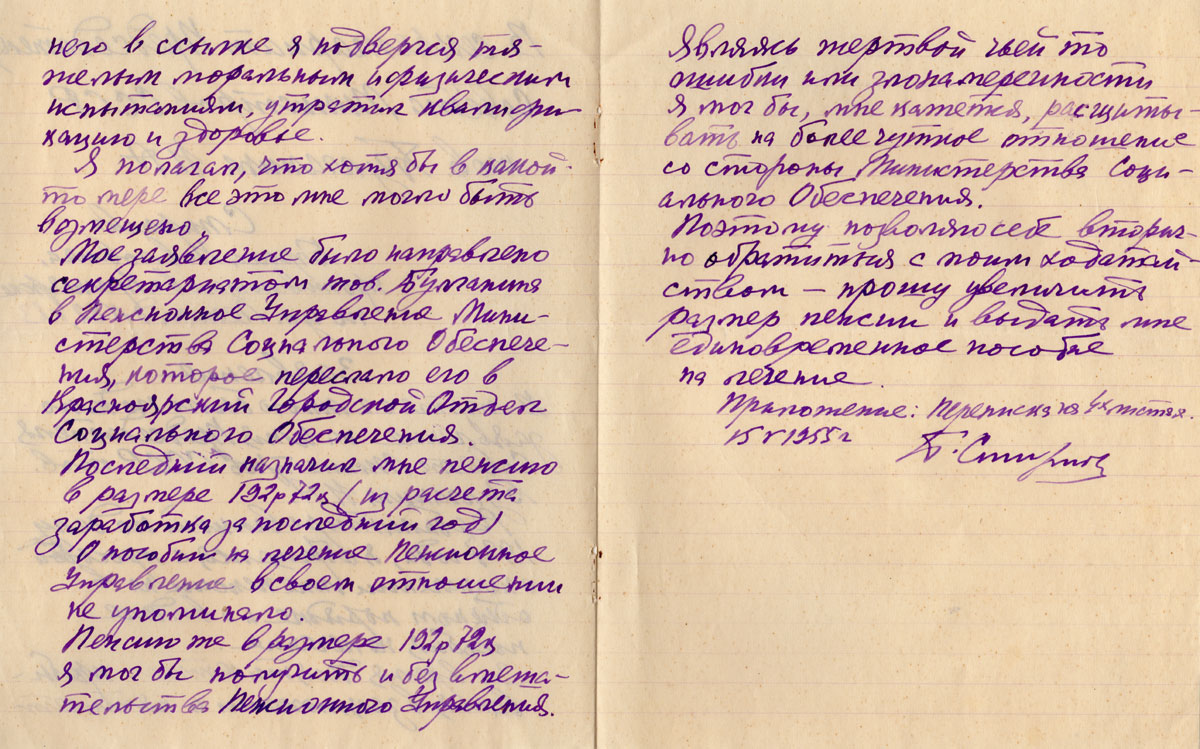 него в ссылке я подвергся тя-
желым моральным и физическим
испытаниям, утратил квалифи-
кацию и здоровье.
Я полагал, что хотя бы в какой-
то мере все это мне могло быть
возмещено.
Мое заявление было направлено
секретариатом тов. Булганина
в Пенсионное Управление Мини-
стерства Социального Обеспече-
ния, которое переслало его в
Красноярский Городской Отдел
Социального Обеспечения.
Последний назначил мне пенсию
в размере 192р72к (из расчета
заработка за последний год)
О пособии на лечение Пенсионное
Управление в своем отношении
не упоминало.
Пенсию же в размере 192р72к
я мог бы получить и без вмеша-
тельства Пенсионного Управления.
Являясь жертвой чьей то
ошибки или злонамеренности
я мог бы, мне кажется, расщиты-
вать на более чуткое отношение
со стороны Министерства Соци-
ального Обеспечения.
Поэтому позволяю себе вторич-
но обратиться с моим ходатай-
ством – прошу увеличить
размер пенсии и выдать мне
единовременное пособие
на лечение.
Приложение: Переписка на 4х листах.
15 V 1955 г
Б. Смирнов